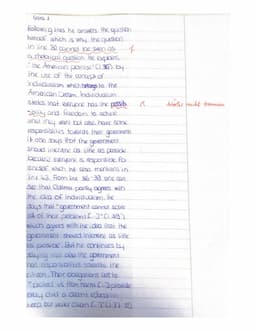 following lines he answers the question
himself which is why the question
in line 30 cannot be seen as
a rhetorical question. He explains
"the American promise" (l. 36) by
the use of the concept of
individualism which to the
American Dream. Individualism
states that everyone has the possib
ility and freedom to achieve
what they want but also have some
responsibilities towards their government.
It also says that the government
should intervene as little as possible
because everyone is responsible for
himself which he also mentions in
line 43. From line 36-38 one can
see that Obama partly agrees with
the idea of individualism. He
says that "government cannot solve
all of their problems [...]" (l. 43 f)
which agrees with the idea that the
government should intervene as little
as possible. But he continues by
saying that also the government
has responsibilities towards the
citizen. Their obligations are to
"protect us from harm [...] provide
every child a decent education
keep our water clean [...]" (l.